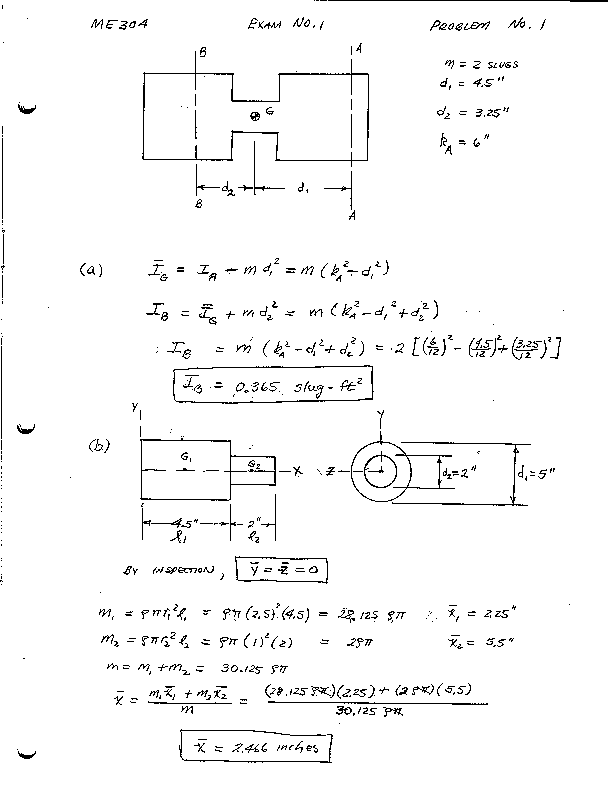 ME304 EXAM NO. 1 PROBLEM NO. 1
B A
m = 2 SLUGS
d₁ = 4.5"
G
d₂ = 3.25"
k_A = 6"
d₂ d₁
B A
(a) Ī_G = I_A - m d₁² = m (k_A² - d₁²)
I_B = Ī_G + m d₂² = m (k_A² - d₁² + d₂²)
∴ I_B = m (k_A² - d₁² + d₂²) = 2 [(6/12)² - (4.5/12)² + (3.25/12)²]
Ī_B = 0.365 slug-ft²
Y Y
(b) G₁ G₂ X Z d₂=2" d₁=5"
4.5" 2"
l₁ l₂
BY INSPECTION, ȳ = z̄ = 0
m₁ = ρπr₁²l₁ = ρπ(2.5)²(4.5) = 28.125 ρπ ∴ x̄₁ = 2.25"
m₂ = ρπr₂²l₂ = ρπ(1)²(2) = 2ρπ x̄₂ = 5.5"
m = m₁ + m₂ = 30.125 ρπ
x̄ = (m₁x̄₁ + m₂x̄₂)/m = ((28.125 ρπ)(2.25) + (2ρπ)(5.5))/(30.125 ρπ)
x̄ = 2.466 inches